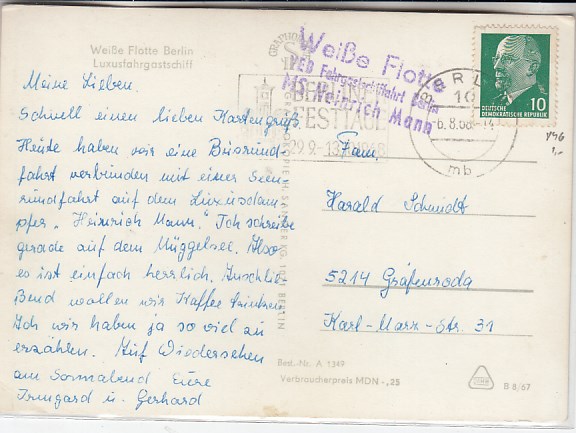 Weiße Flotte Berlin
Luxusfahrgastschiff
Meine Lieben.
Schnell einen lieben Kartengruß.
Heute haben wir eine Busrund-
fahrt verbunden mit einer Seen
rundfahrt auf dem Luxusdam-
pfer „Heinrich Mann." Ich schreibe
gerade auf dem Müggelsee. Also
es ist einfach herrlich. Anschlie-
ßend wollen wir Kaffee trinken.
Ach wir haben ja so viel zu
erzählen. Auf Wiedersehen
am Sonnabend Eure
Irmgard u. Gerhard
Weiße Flotte
VEB Fahrgastschiffahrt Berlin
MS Heinrich Mann
BERLINER
FESTTAGE
29.9.-13.10.1968
BERLIN
10
-6.8.68
mb
DEUTSCHE
DEMOKRATISCHE REPUBLIK
10
Fam.
Harald Schmidt
5214 Gräfenroda
Karl-Marx-Str. 31
Best.-Nr. A 1349
Verbraucherpreis MDN -,25
B 8/67